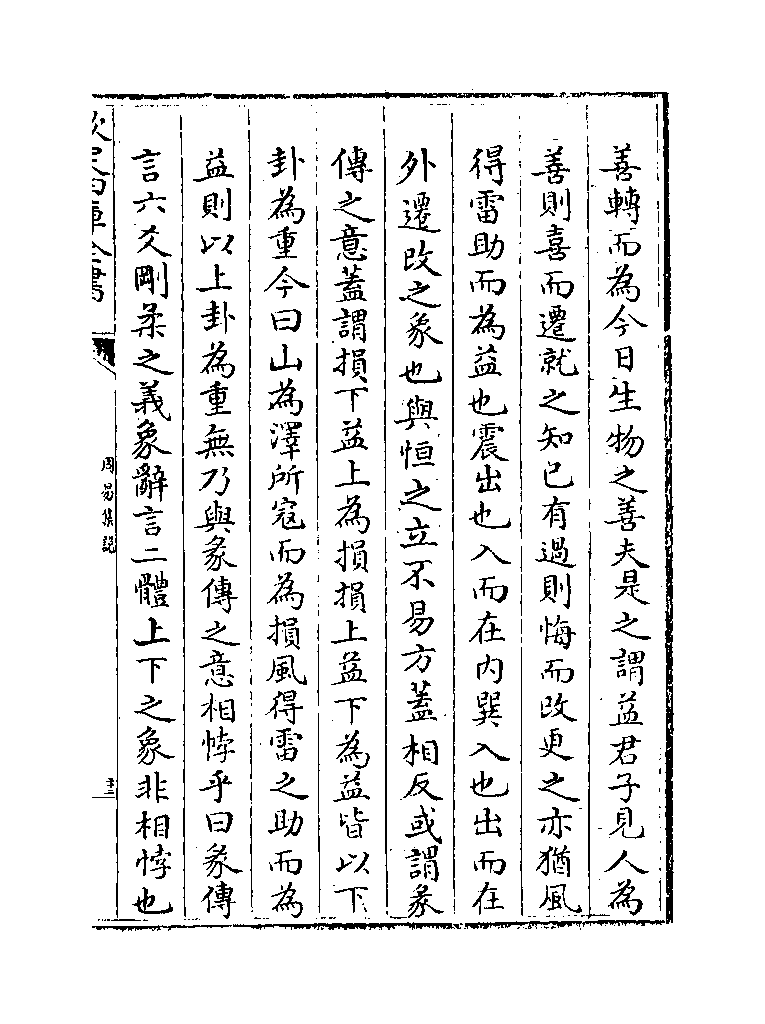 善轉而為今日生物之善夫是之謂益君子見人為
善則喜而遷就之知已有過則悔而改更之亦猶風
得雷助而為益也震出也入而在内巽入也出而在
外遷改之象也與恒之立不易方蓋相反或謂彖
傳之意蓋謂損下益上為損損上益下為益皆以下
卦為重今曰山為澤所寇而為損風得雷之助而為
益則以上卦為重無乃與彖傳之意相悖乎曰彖傳
言六爻剛柔之義象辭言二體上下之象非相悖也
欽定四庫全書
周易集説